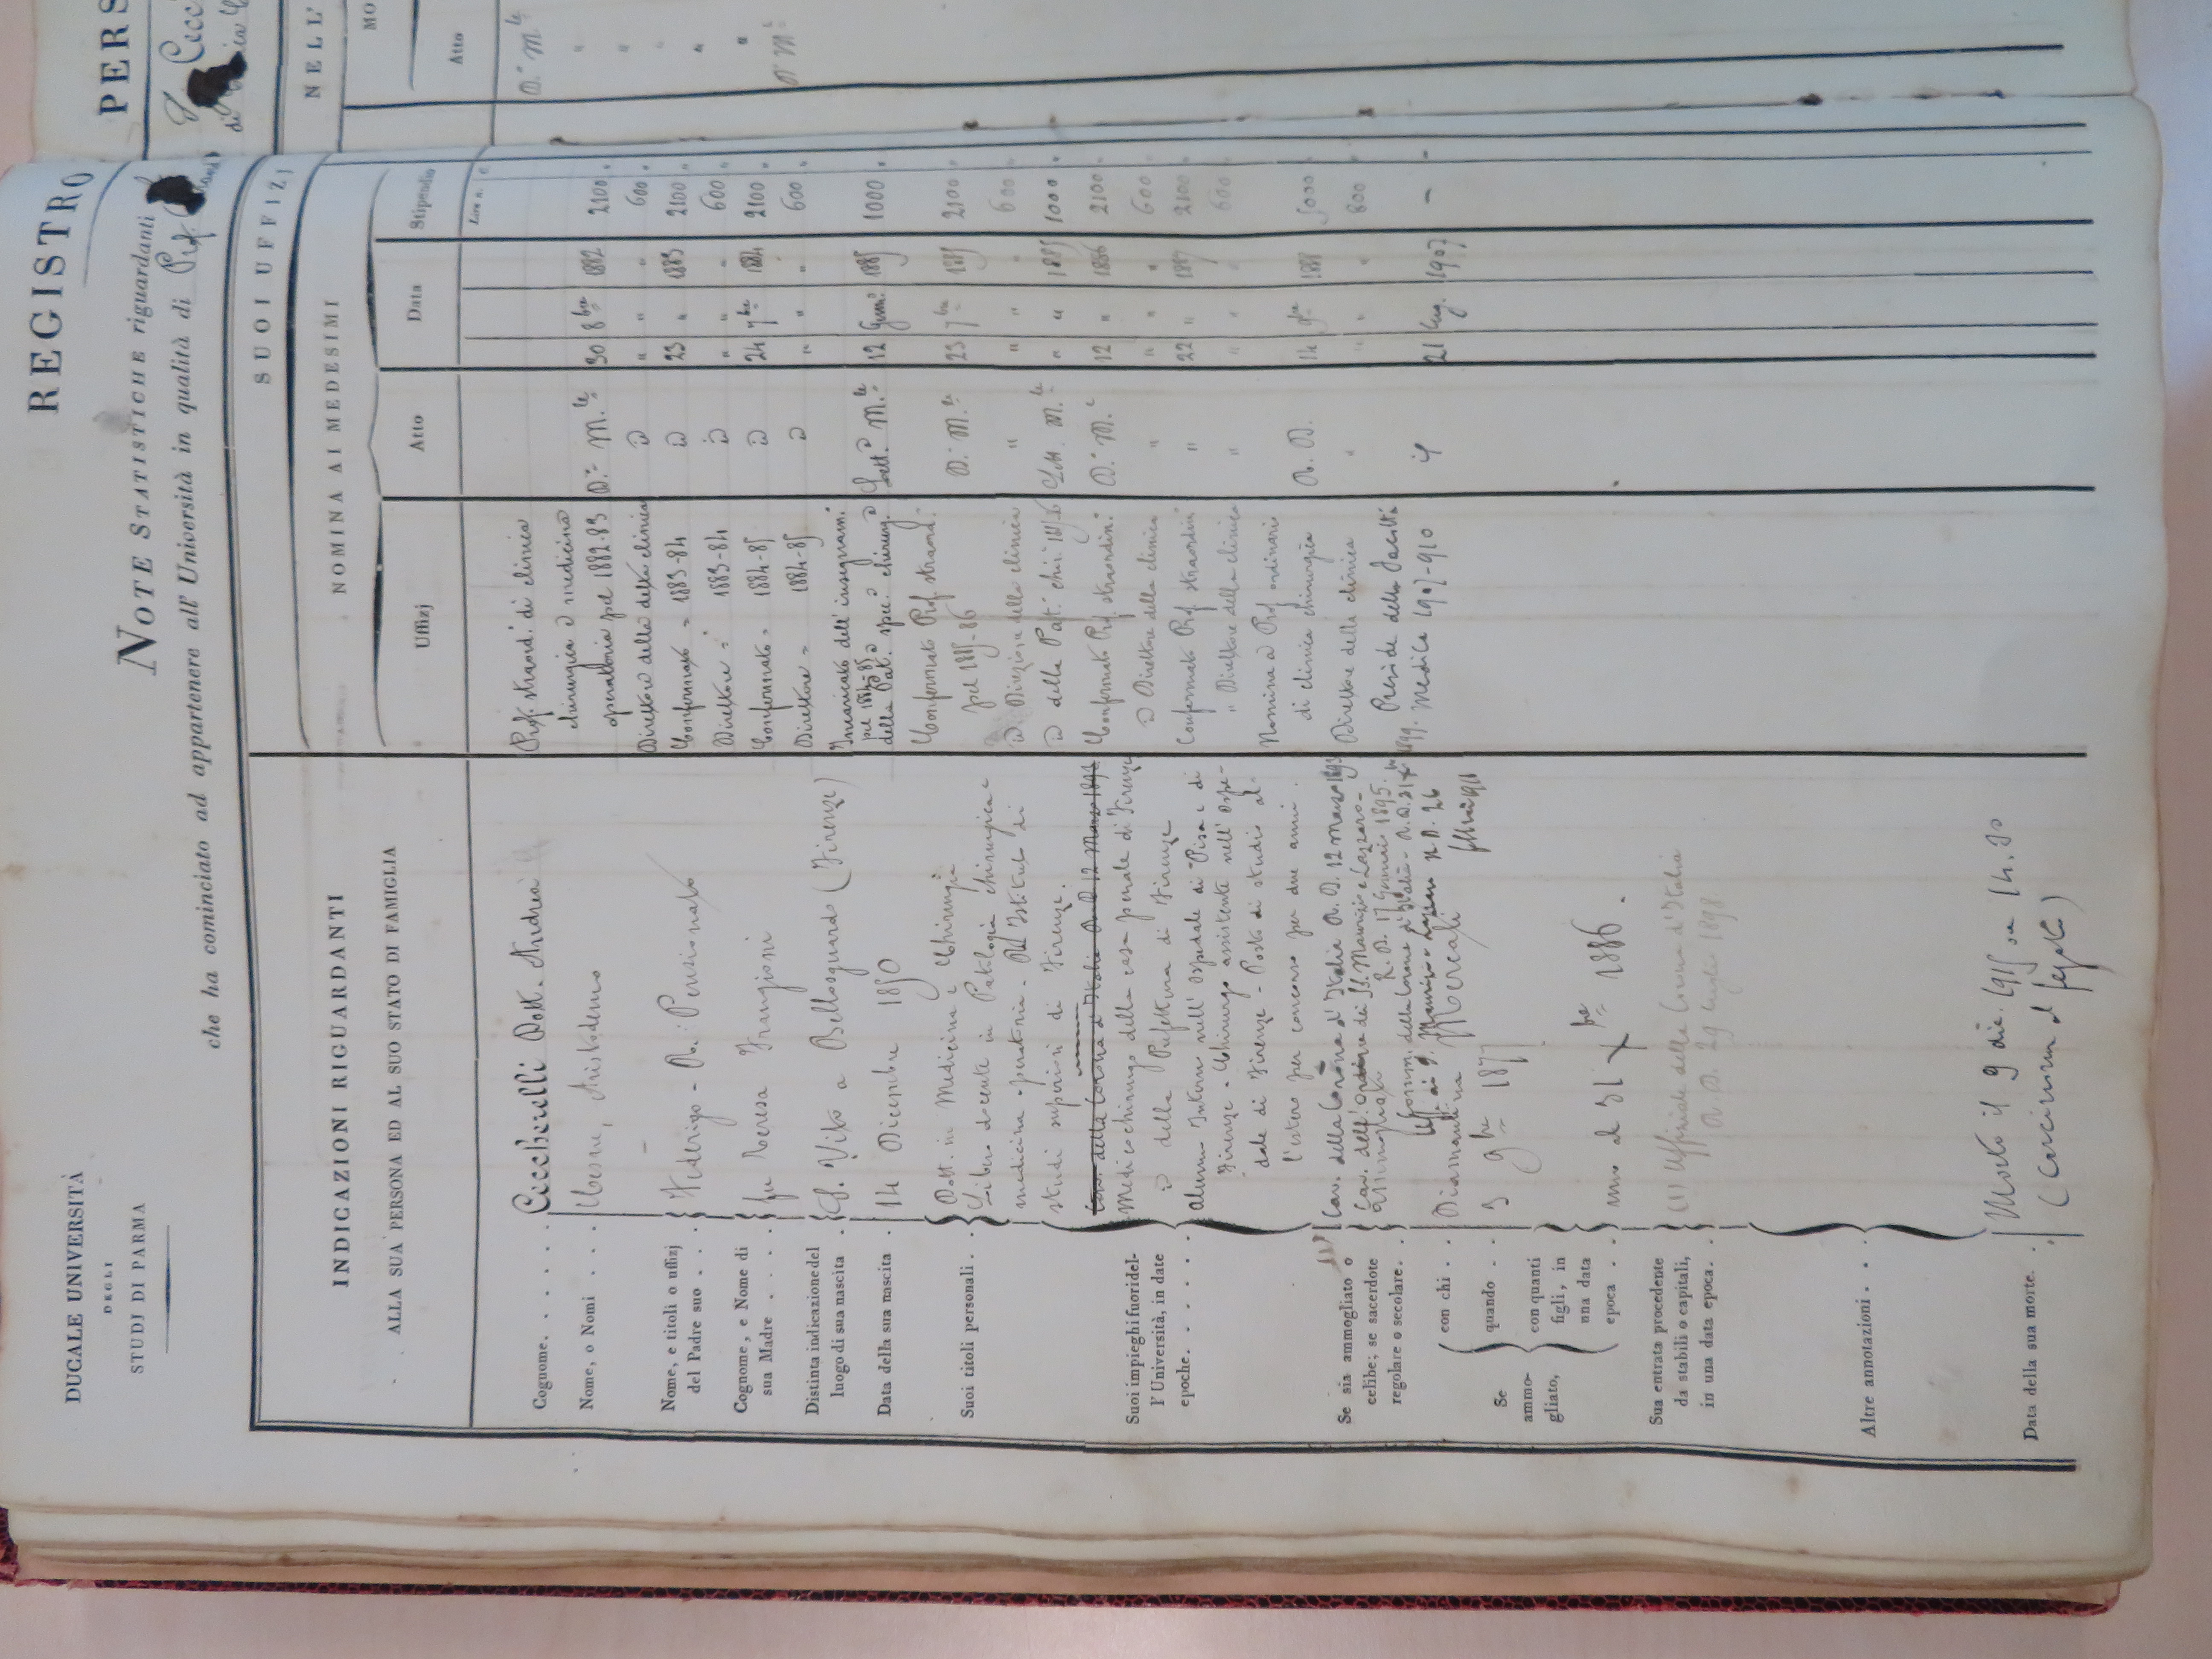 DUCALE UNIVERSITÀ
DEGLI
STUDI DI PARMA
REGISTRO
NOTE STATISTICHE riguardanti
che ha cominciato ad appartenere all' Università in qualità di Prof.
INDICAZIONI RIGUARDANTI
ALLA SUA PERSONA ED AL SUO STATO DI FAMIGLIA
Cognome. . . . . . Ceccherelli Dott. Andrea
Nome, o Nomi . . . Cesare, Aristodemo
Nome, e titoli o uffizj
del Padre suo . . . Federigo - R.: Pensionato
Cognome, e Nome di
sua Madre . . . . fu Teresa Frangioni
Distinta indicazione del
luogo di sua nascita . S. Vito a Bellosguardo (Firenze)
Data della sua nascita . 14 Dicembre 1850
Suoi titoli personali . .
Dott. in Medicina e Chirurgia
Libero docente in Patologia chirurgica e
medicina operatoria - Del Istituto di
studi superiori di Firenze.
Cav. della Corona d'Italia R. D. 12 Marzo 1893
Suoi impieghi fuori del-
l' Università, in date
epoche. . . . . . .
Medico chirurgo della casa penale di Firenze
della Prefettura di Firenze
alunno interno nell' ospedale di Pisa e di
Firenze - Chirurgo assistente nell' Ospe-
dale di Firenze - Posto di studio al-
l'estero per concorso per due anni.
Se sia ammogliato o
celibe; se sacerdote
regolare o secolare. .
Cav. della Corona d'Italia R. D. 12 Marzo 1893
Cav. dell' Ordine dei SS. Maurizio e Lazzaro -
R. D. 17 Gennai 1895.
Ammogliato
Se
ammo-
gliato,
con chi . . Diamantina Mercali
quando . . 3 9bre 1877
con quanti
figli, in
una data
epoca . . uno al 31 Xbre 1886.
Sua entrata procedente
da stabili o capitali,
in una data epoca. .
(1) Uffiziale della Corona d'Italia
R. D. 29 luglio 1898.
Altre annotazioni . .
Data della sua morte. . Morto il 9 dic. 1915 ore 14.30
(Carcinoma al fegato)
SUOI UFFIZJ
NOMINA AI MEDESIMI
Uffizj Atto Data Stipendio
Lire n. c.
Prof. straord. di clinica
chirurgica e medicina
operatoria pel 1882-83 D. M.le 30 8bre 1882 2100 "
Direttore della clinica " " " 600 "
Confermato = 1883-84 23 " 1883 2100 "
Direttore = 1883-84 " " " 600 "
Confermato = 1884-85 24 7bre 1884 2100 "
Direttore = 1884-85 " " " 600 "
Incaricato dell' insegnam.
pel 1884-85
della Pat. spec. chirurg. Lett. M.le 12 Genn. 1885 1000 "
Confermato Prof. straord.
pel 1885-86 D. M.le 23 7bre 1885 2100 "
Direzione della clinica " " " " 600 "
della Pat. chir. Lett. M.le " " 1885 1000 "
Confermato Prof. straordin. D. M.e 12 " 1886 2100 "
Direttore della clinica " " " " 600 "
Confermato Prof. straordin. " 22 " 1887 2100 "
" Direttore della clinica " " " " 600 "
Nomina a Prof. ordinario
di clinica chirurgica R. D. 14 9bre 1888 5000 "
Direttore della clinica " " " " 800 "
Preside della Facoltà
Medica 1907-910 21 Lug. 1907 —
PERS
NELL'
MO
Atto
D. M.le
"
"
"
"
"
D. M.